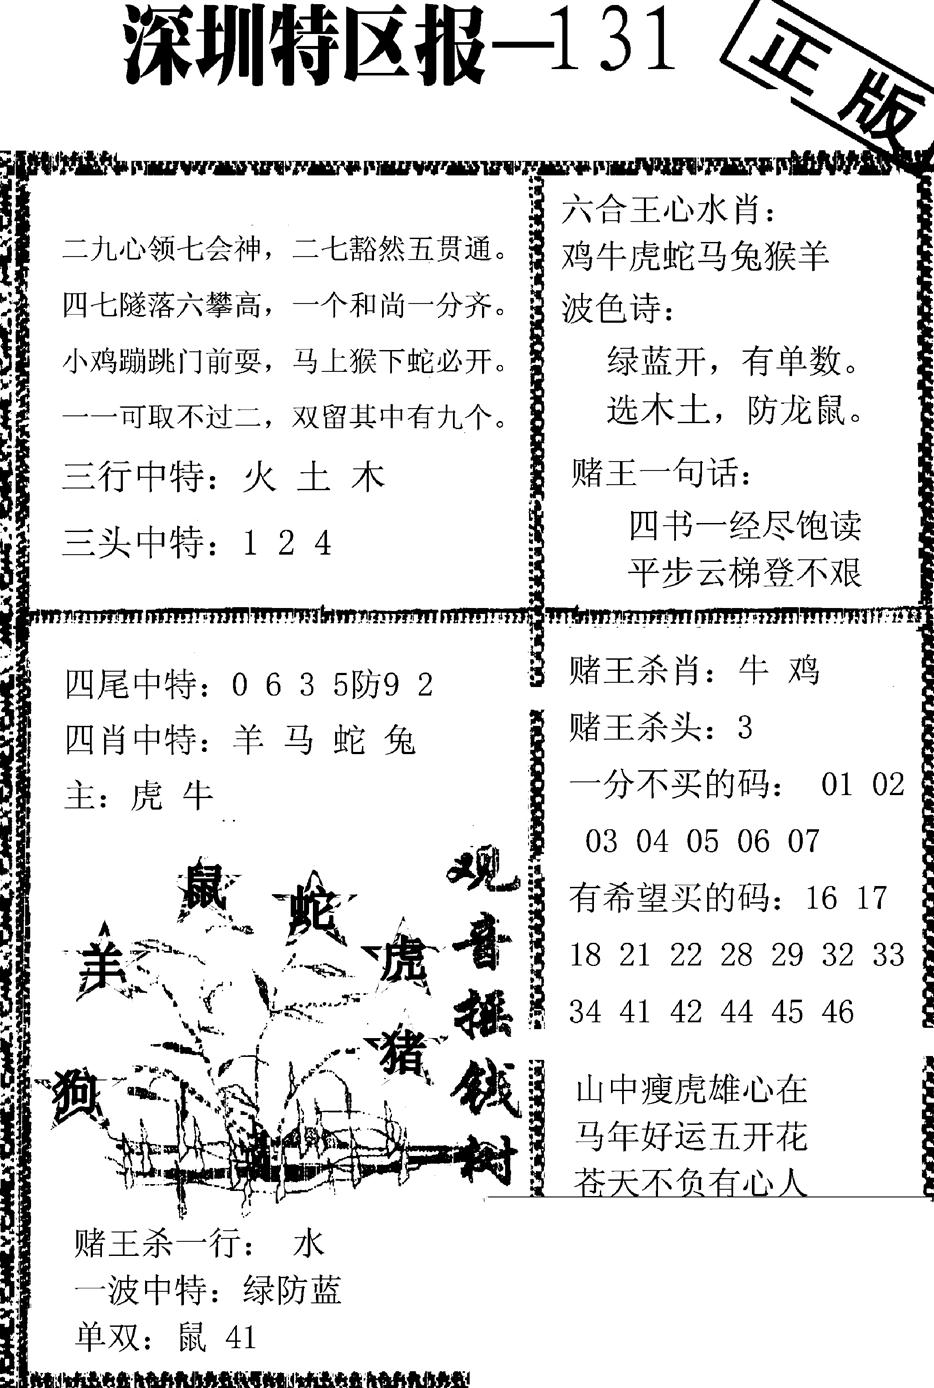 深圳特区报—131
正版
二九心领七会神，二七豁然五贯通。
四七隧落六攀高，一个和尚一分齐。
小鸡蹦跳门前耍，马上猴下蛇必开。
一一可取不过二，双留其中有九个。
三行中特：火 土 木
三头中特：1 2 4
六合王心水肖：
鸡牛虎蛇马兔猴羊
波色诗：
绿蓝开，有单数。
选木土，防龙鼠。
赌王一句话：
四书一经尽饱读
平步云梯登不艰
四尾中特：0 6 3 5防9 2
四肖中特：羊 马 蛇 兔
主：虎 牛
鼠
蛇
羊
虎
猪
狗
观音摇钱树
赌王杀一行： 水
一波中特：绿防蓝
单双：鼠 41
赌王杀肖：牛 鸡
赌王杀头：3
一分不买的码： 01 02
03 04 05 06 07
有希望买的码：16 17
18 21 22 28 29 32 33
34 41 42 44 45 46
山中瘦虎雄心在
马年好运五开花
苍天不负有心人